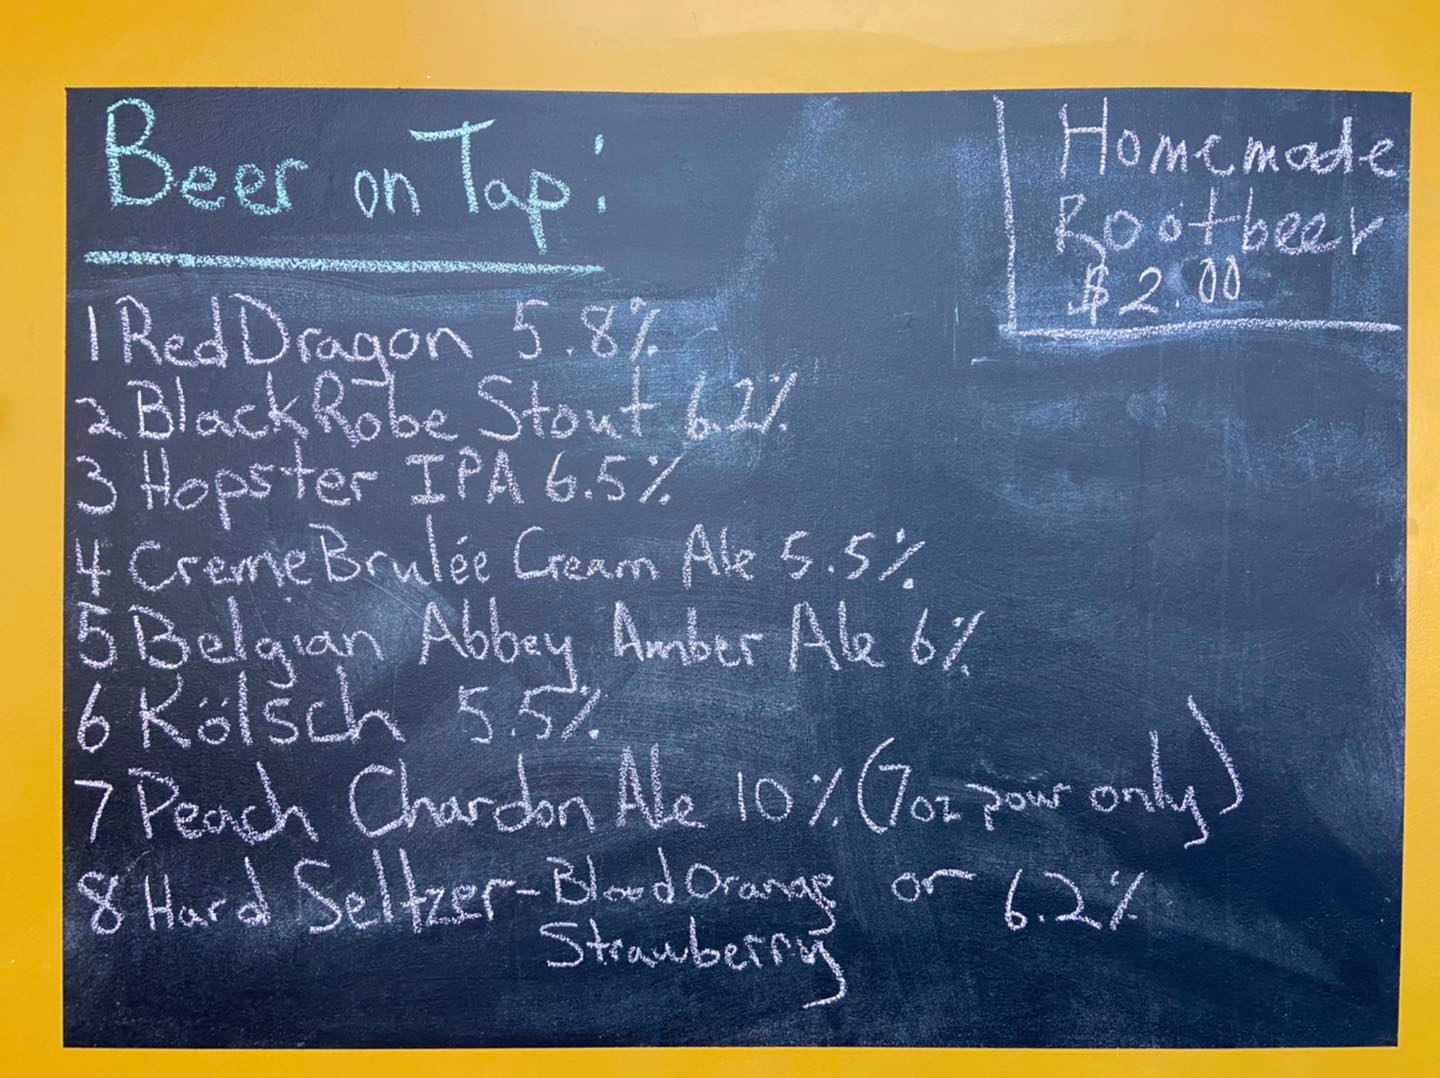 Beer on Tap:
Homemade
Rootbeer
$2.00
1 Red Dragon 5.8%
2 Black Robe Stout 6.2%
3 Hopster IPA 6.5%
4 Creme Brulée Cream Ale 5.5%
5 Belgian Abbey Amber Ale 6%
6 Kölsch 5.5%
7 Peach Chardon Ale 10% (7oz pour only)
8 Hard Seltzer - Blood Orange or 6.2%
Strawberry